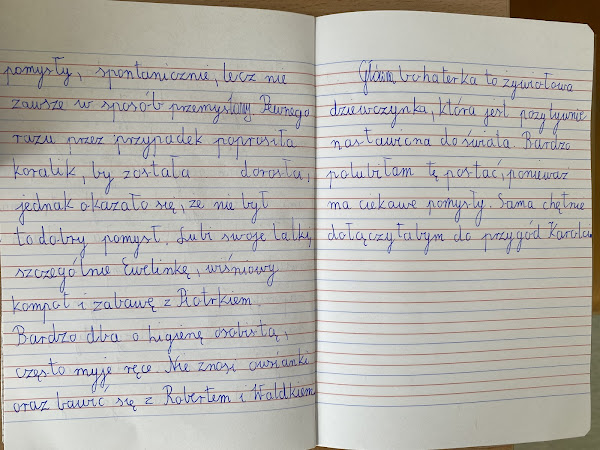 pomysły, spontanicznie, lecz nie
zawsze w sposób przemyślany. Pewnego
razu przez przypadek poprosiła
koralik, by została dorosła,
jednak okazało się, że nie był
to dobry pomysł. Lubi swoje lalki,
szczególnie Ewelinkę, wiśniowy
kompot i zabawę z Piotrkiem.
Bardzo dba o higienę osobistą,
często myje ręce. Nie znosi owsianki
oraz bawić się z Robertem i Waldkiem.
Główna bohaterka to żywiołowa
dziewczynka, która jest pozytywnie
nastawiona do świata. Bardzo
polubiłam tę postać, ponieważ
ma ciekawe pomysły. Sama chętnie
dołączyłabym do przygód Karolci.